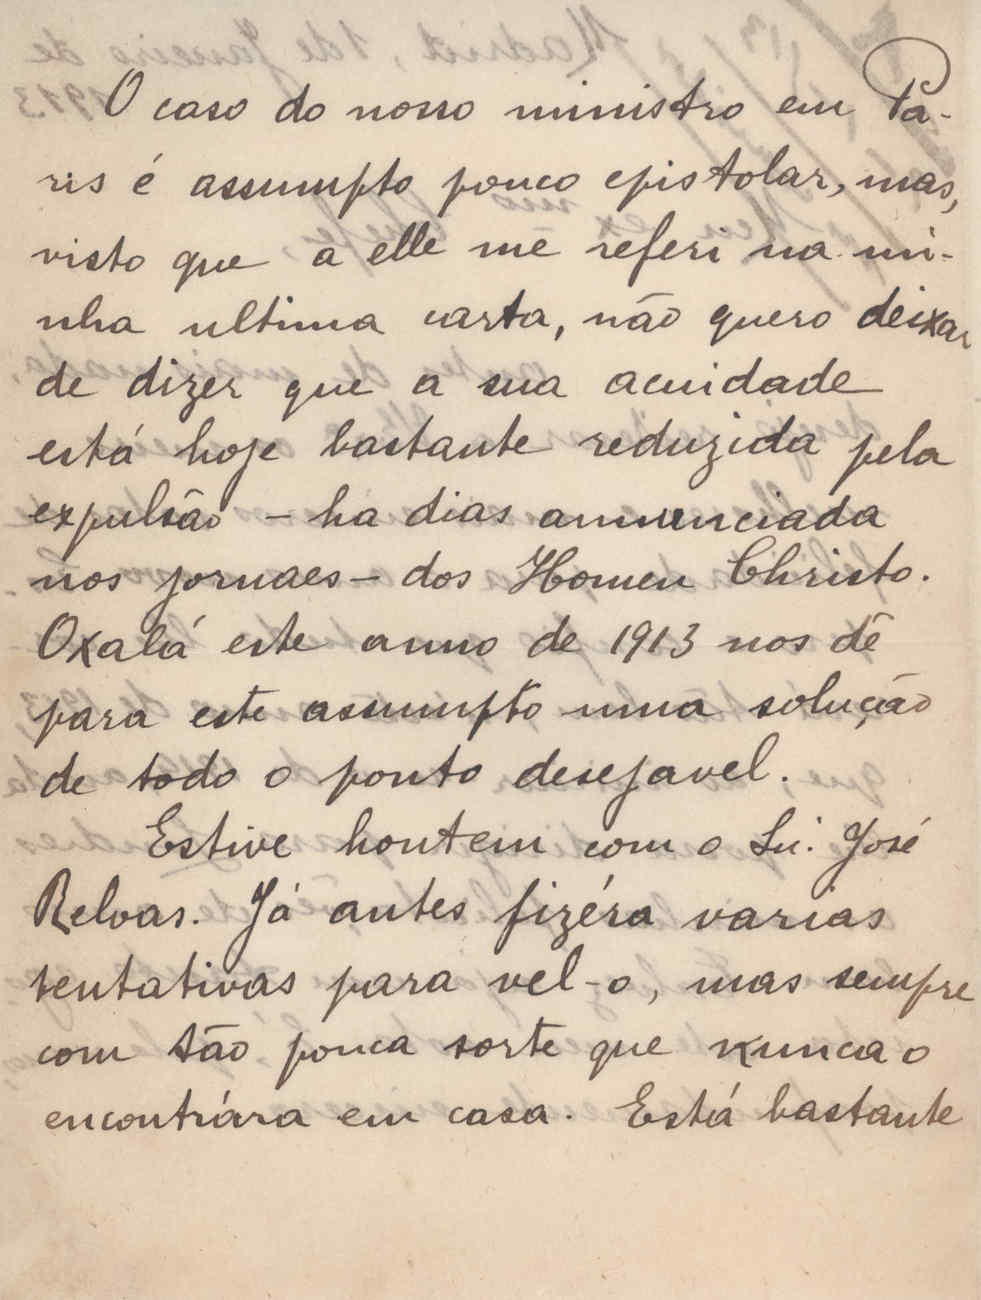 O caso do nosso ministro em Pa-
ris é assumpto pouco epistolar, mas,
visto que a elle me referi na mi-
nha ultima carta, não quero deixar
de dizer que a sua acuidade
está hoje bastante reduzida pela
expulsão – ha dias annunciada
nos jornaes – dos Homem Christo.
Oxalá este anno de 1913 nos dê
para este assumpto uma solução
de todo o ponto desejavel.
Estive hontem com o Sr. José
Relvas. Já antes fizéra varias
tentativas para vel-o, mas sempre
com tão pouca sorte que nunca o
encontrára em casa. Está bastante